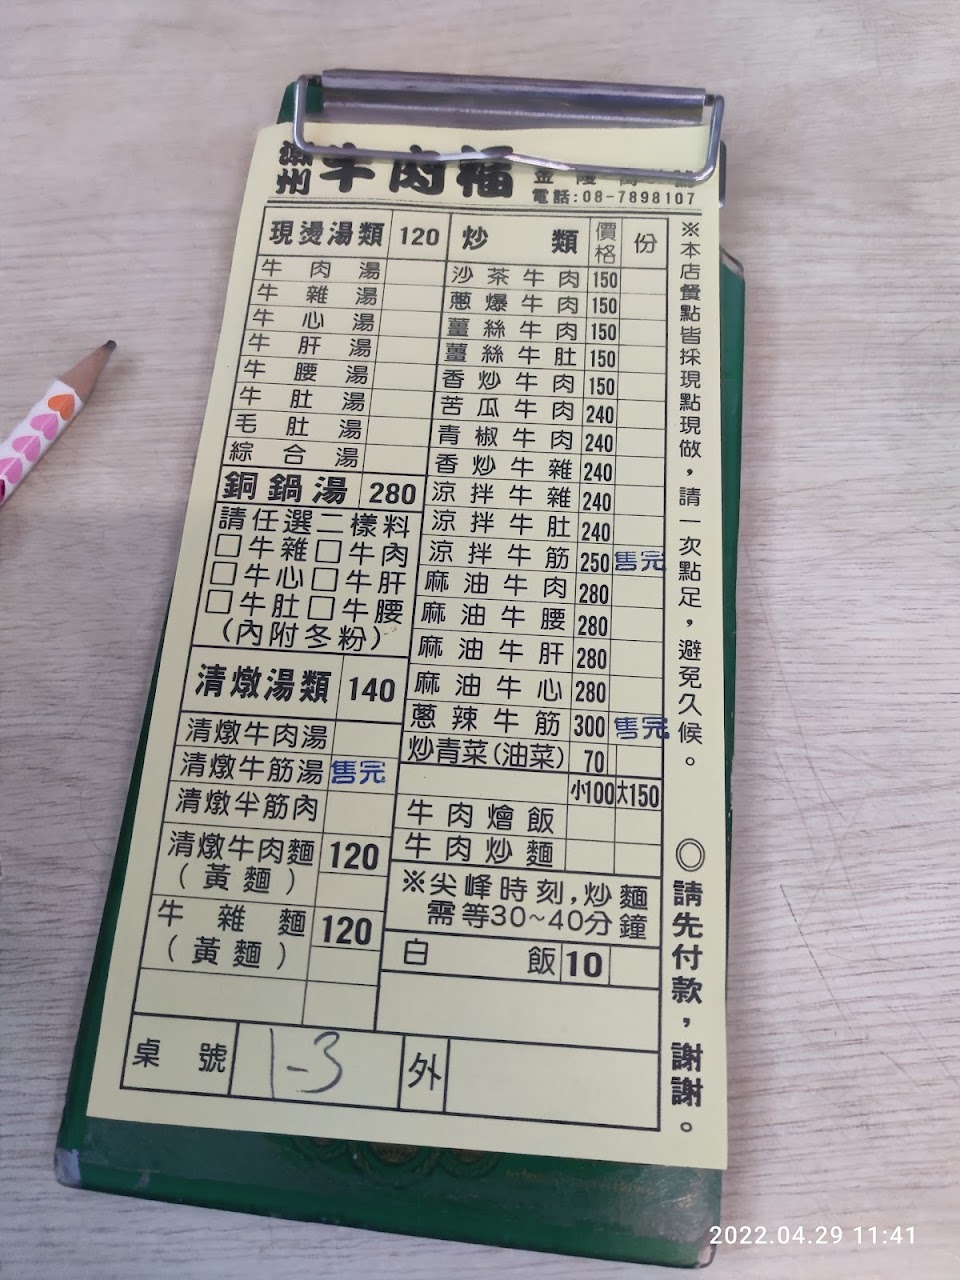 潮州 牛肉福
電話:08-7898107
現燙湯類 120
牛肉湯
牛雜湯
牛心湯
牛肝湯
牛腰湯
牛肚湯
毛肚湯
綜合湯
銅鍋湯 280
請任選二樣料
□牛雜□牛肉
□牛心□牛肝
□牛肚□牛腰
(內附冬粉)
清燉湯類 140
清燉牛肉湯
清燉牛筋湯 售完
清燉半筋肉
清燉牛肉麵 120
(黃麵)
牛雜麵 120
(黃麵)
炒類 價格 份
沙茶牛肉 150
蔥爆牛肉 150
薑絲牛肉 150
薑絲牛肚 150
香炒牛肉 150
苦瓜牛肉 240
青椒牛肉 240
香炒牛雜 240
涼拌牛雜 240
涼拌牛肚 240
涼拌牛筋 250 售完
麻油牛肉 280
麻油牛腰 280
麻油牛肝 280
麻油牛心 280
蔥辣牛筋 300 售完
炒青菜(油菜) 70
小100 大150
牛肉燴飯
牛肉炒麵
※尖峰時刻,炒麵
需等30~40分鐘
白飯 10
桌號 1-3 外
※本店餐點皆採現點現做,請一次點足,避免久候。
◎請先付款,謝謝。
2022.04.29 11:41